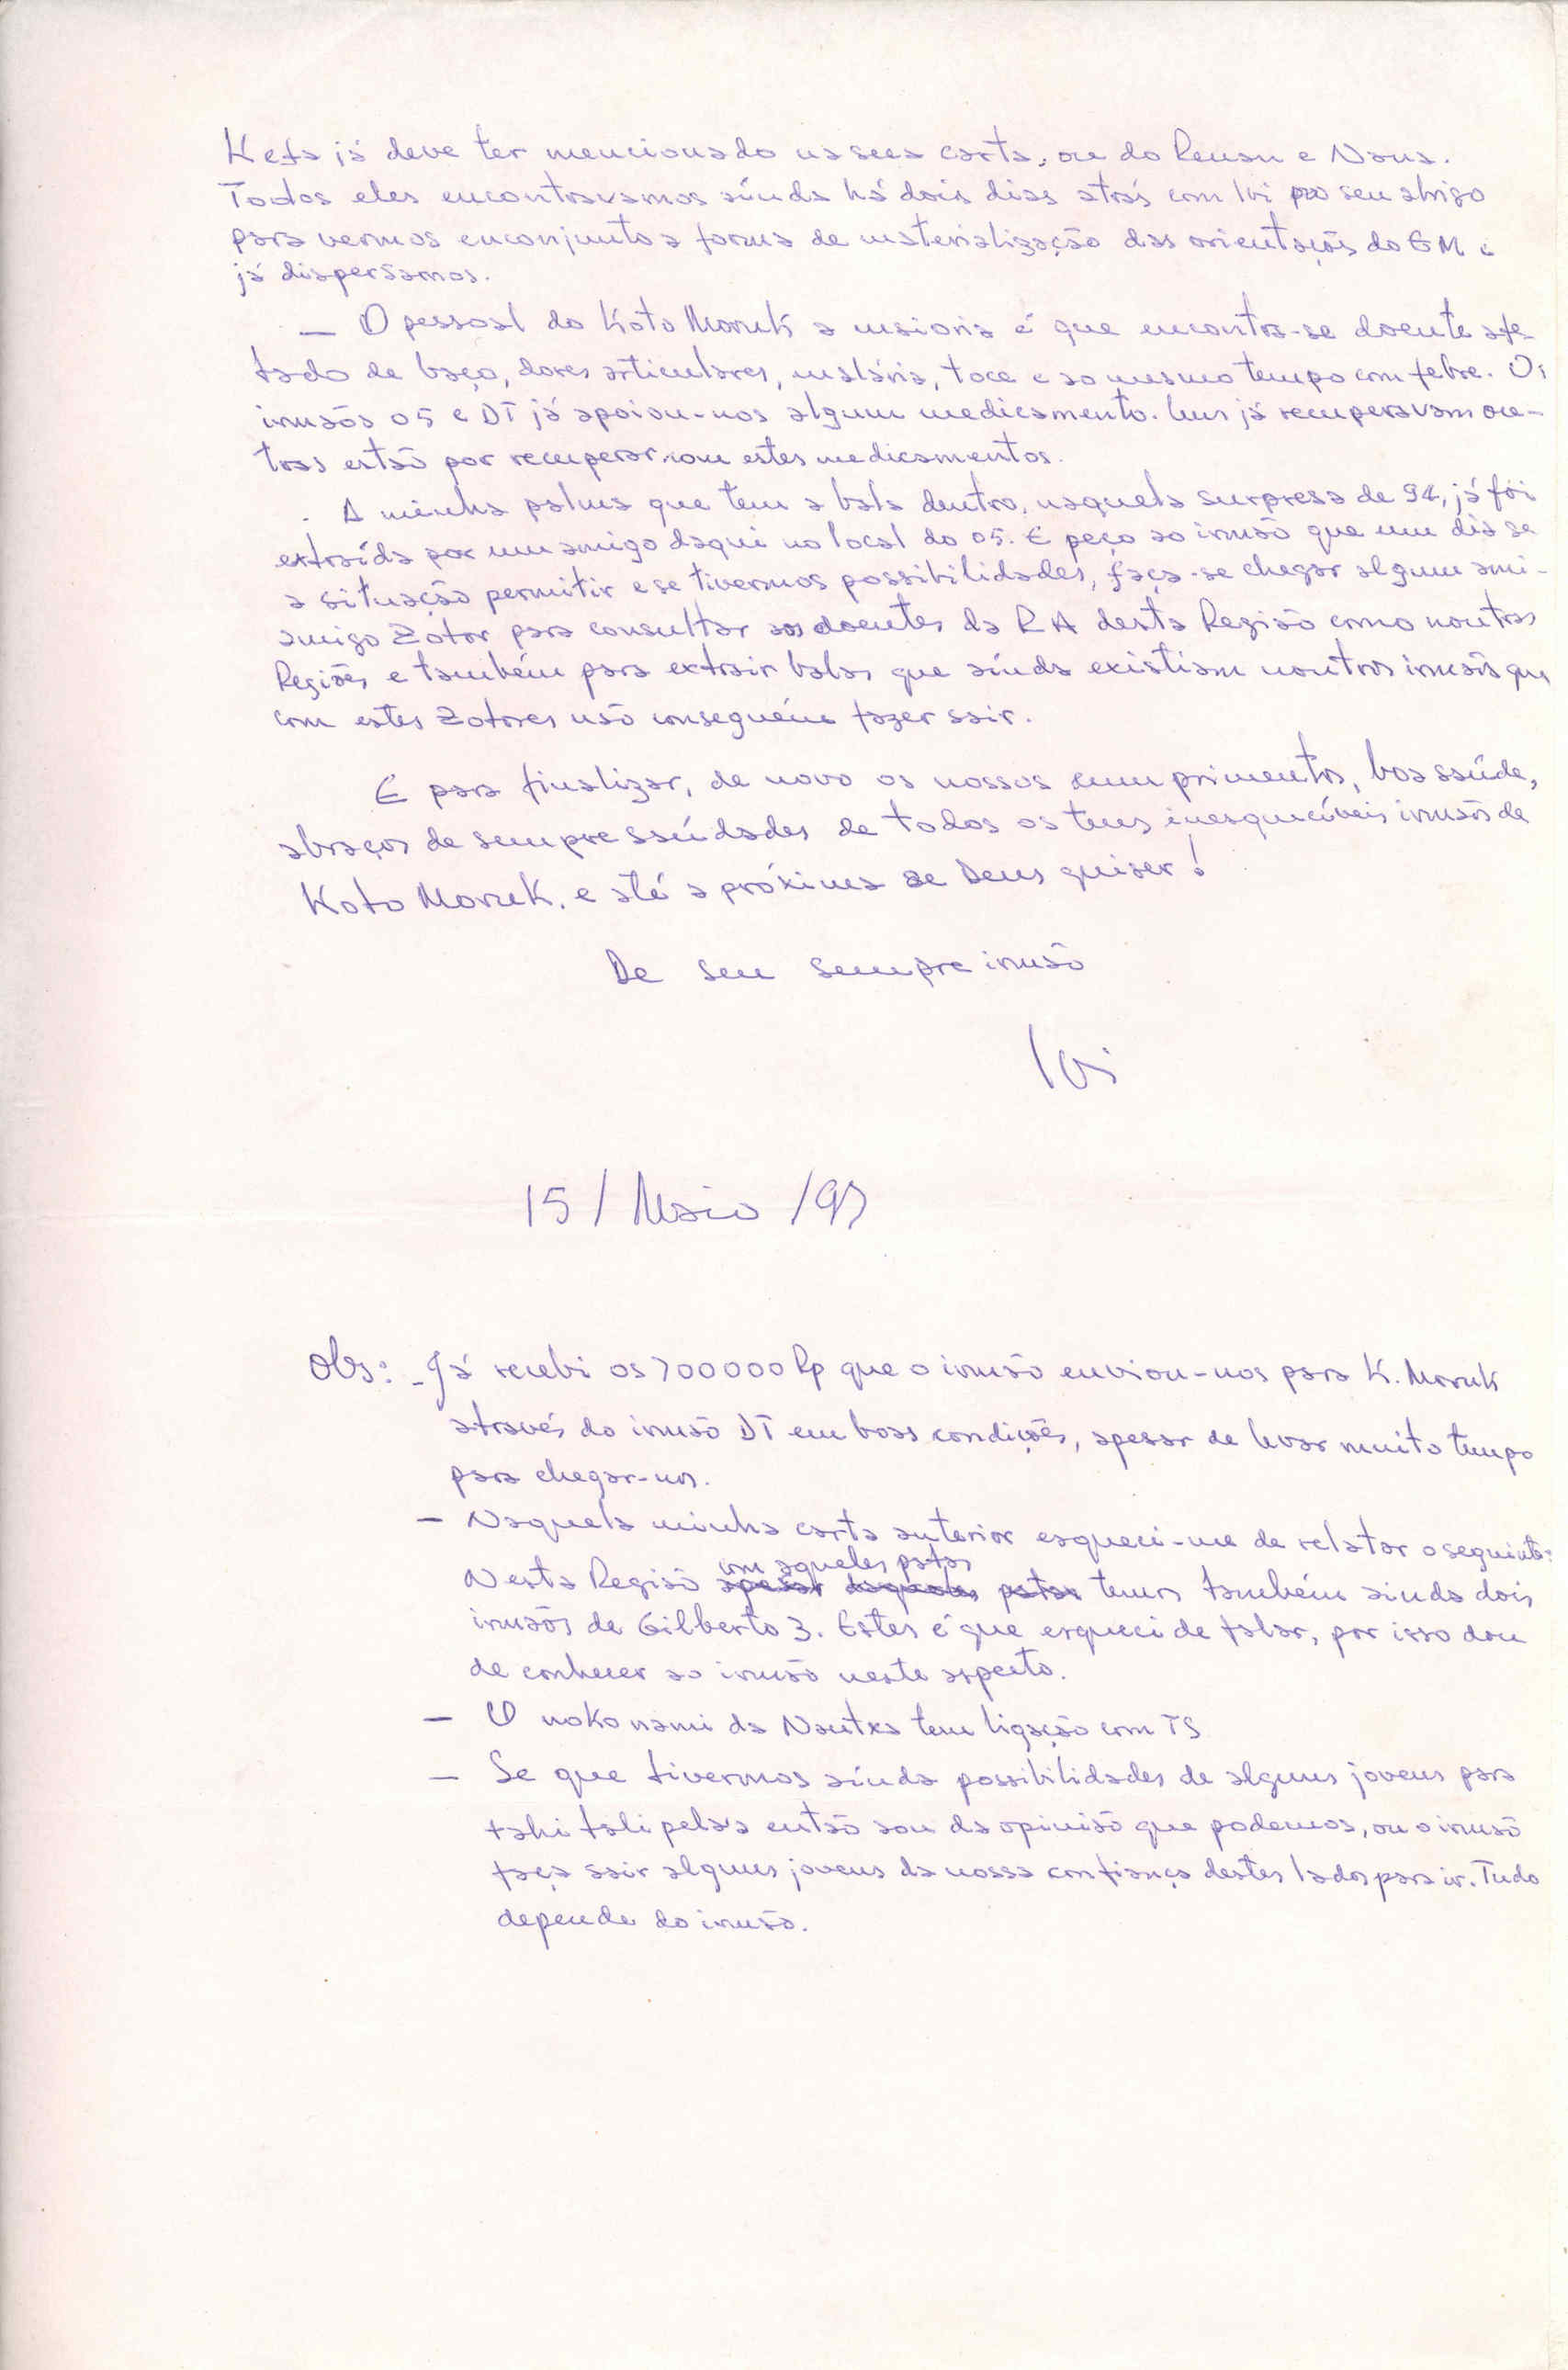 Kefa já deve ter mencionado na sua carta, ou do Renan e Nana.
Todos eles encontravamos aínda há dois dias atrás com Ivi no seu abrigo
para vermos enconjunto a forma de materialização das orientações do GM e
já dispersamos.
— O pessoal do Koto Moruk a maioria é que encontra-se doente afe-
tado de baço, dores articulares, malária, toce e ao mesmo tempo com febre. Os
irmãos 05 e DT já apoiou-nos algum medicamento. Uns já recuperavam ou-
tros estão por recuperar com estes medicamentos.
. A minha palma que tem a bala dentro, naquela surpresa de 94, já foi
extraída por um amigo daqui no local do 05. E peço ao irmão que um dia se
a situação permitir e se tivermos possibilidades, faça-se chegar algum ami-
amigo Zotor para consultar aos doentes da RA desta Região como noutras
Regiões e também para extrair balas que aínda existiam noutros irmãos que
com estes Zotores não conseguém fazer sair.
E para finalizar, de novo os nossos cumprimentos, boa saúde,
abraços de sempre saúdades de todos os teus inesquecíveis irmãos de
Koto Moruk. e até a próxima se Deus quiser!
De seu sempre irmão
Ivi
15 / Maio / 97
Obs: - Já recebi os 700000 Rp que o irmão enviou-nos para K. Moruk
através do irmão DT em boas condições, apesar de levar muito tempo
para chegar-nos.
— Naquela minha carta anterior esqueci-me de relatar o seguinte:
com aqueles patos
Nesta Região apesar daqueles patos temos também aínda dois
irmãos de Gilberto 3. Estes é que esqueci de falar, por isso dou
de conhecer ao irmão neste aspecto.
— O noko nami da Nautxa tem ligação com TS
— Se que tivermos aínda possibilidades de alguns jovens para
tahi tali pela's então sou da opinião que podemos, ou o irmão
faça sair alguns jovens da nossa confiança destes lados para ir. Tudo
depende do irmão.